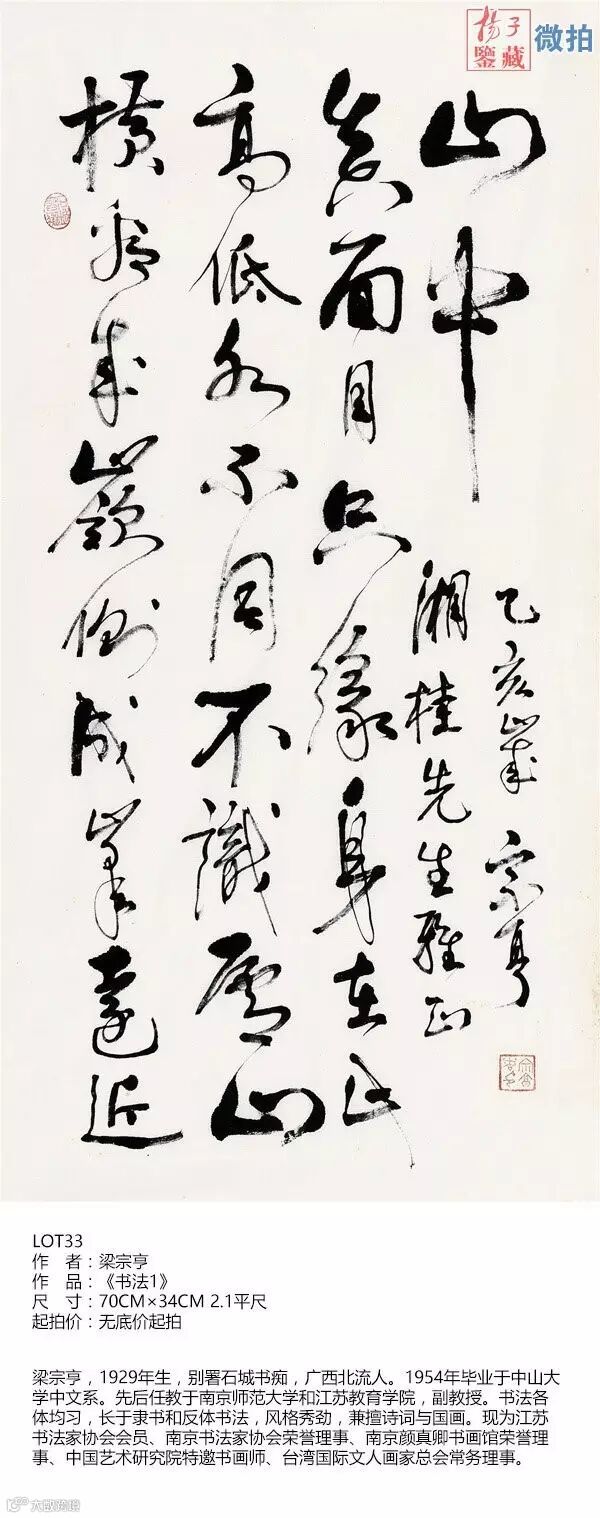 揚子
鑒藏
微拍
橫看成嶺側成峯遠近
高低各不同不識廬山
真面目只緣身在此
山中
湘桂先生雅正
乙亥歲 宗亨
LOT33
作 者：梁宗亨
作 品：《书法1》
尺 寸：70CM×34CM 2.1平尺
起拍价：无底价起拍
梁宗亨，1929年生，别署石城书痴，广西北流人。1954年毕业于中山大
学中文系。先后任教于南京师范大学和江苏教育学院，副教授。书法各
体均习，长于隶书和反体书法，风格秀劲，兼擅诗词与国画。现为江苏
书法家协会会员、南京书法家协会荣誉理事、南京颜真卿书画馆荣誉理
事、中国艺术研究院特邀书画师、台湾国际文人画家总会常务理事。
大数跨境